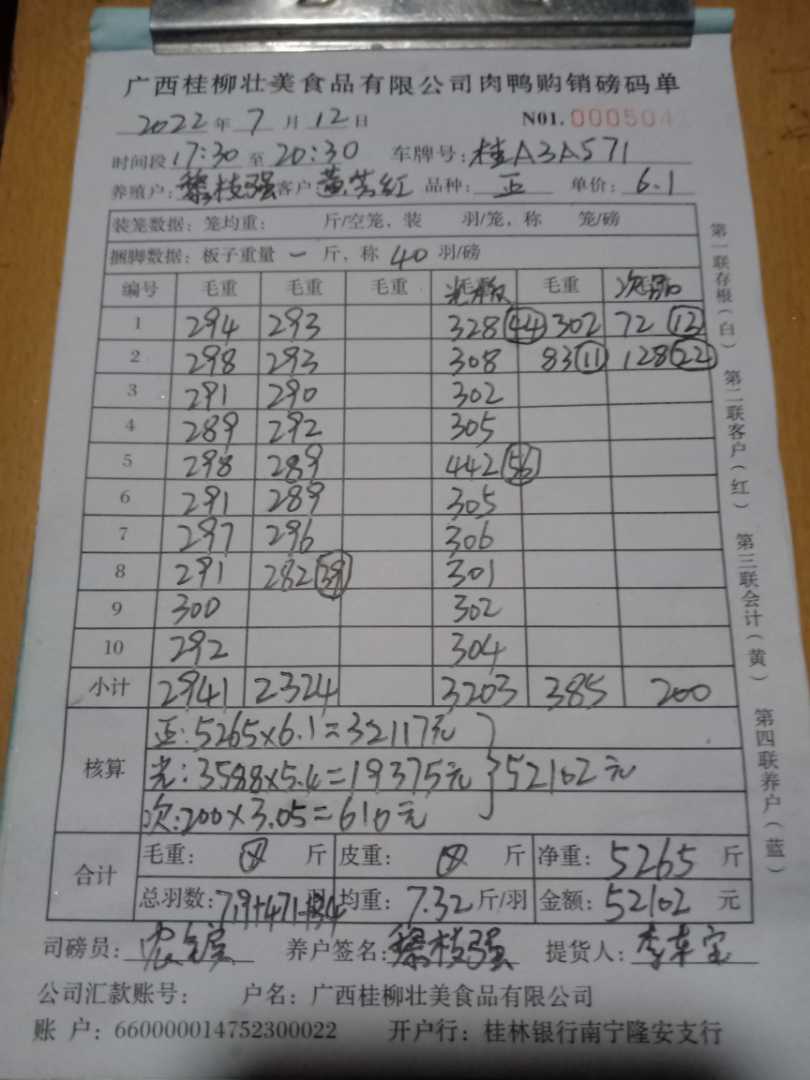 广西桂柳壮美食品有限公司肉鸭购销磅码单
2022年7月12日 N01.000504
时间段17:30至20:30 车牌号:桂A3A571
养殖户:黎枝强客户 品种:正 单价:6.1
装笼数据:笼均重: 斤/空笼,装 羽/笼,称 笼/磅
捆脚数据:板子重量 一 斤,称 40 羽/磅
编号 毛重 毛重 毛重 毛重 次品
1 294 293 328(44) 302 72(12)
2 298 293 308 83(11) 128(22)
3 291 290 302
4 289 292 305
5 298 289 442(56)
6 291 289 305
7 297 296 306
8 291 282(39) 301
9 300 302
10 292 304
小计 2941 2324 3203 385 200
核算 正:5265×6.1=32117元
光:3588×5.4=19375元 }52102元
次:200×3.05=610元
合计 毛重: 斤 皮重: 斤 净重:5265斤
总羽数:719+471+34 均重:7.32斤/羽 金额:52102元
司磅员: 养户签名:黎枝强 提货人:李车宝
公司汇款账号: 户名:广西桂柳壮美食品有限公司
账 户:660000014752300022 开户行:桂林银行南宁隆安支行
第一联存根(白) 第二联客户(红) 第三联会计(黄) 第四联养户(蓝)